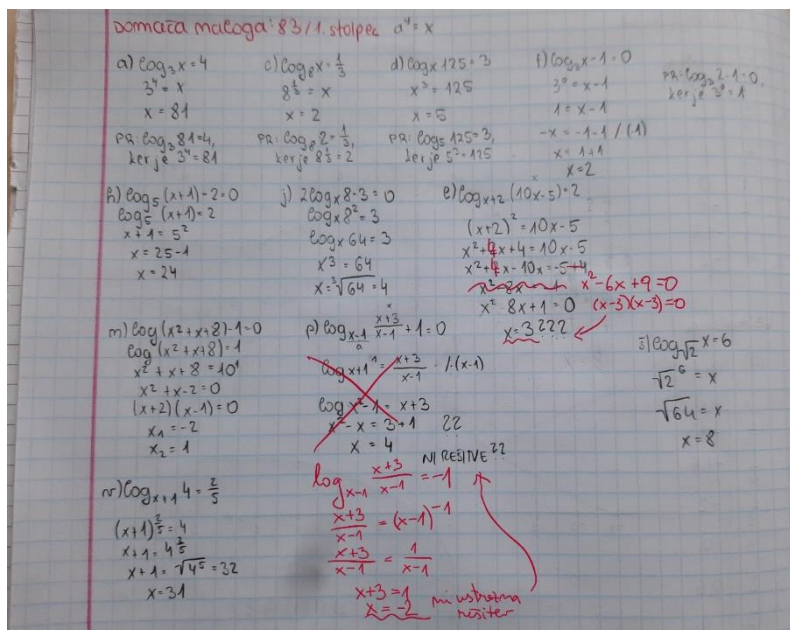 Domača naloga: 83/1. stolpec a^y = x
a) log₃x = 4
3⁴ = x
x = 81
PR: log₃81 = 4,
ker je 3⁴ = 81
c) log₈x = 1/3
8^(1/3) = x
x = 2
PR: log₈2 = 1/3,
ker je 8^(1/3) = 2
d) logₓ125 = 3
x³ = 125
x = 5
PR: log₅125 = 3,
ker je 5³ = 125
x - 1 = 0
3⁰ = x - 1
1 = x - 1
-x = -1 - 1 / (1)
x = 1 + 1
x = 2
2 - 1 = 0,
ker je 3⁰ = 1
h) log₅(x+1) - 2 = 0
log₅(x+1) = 2
x + 1 = 5²
x = 25 - 1
x = 24
j) 2logₓ8 - 3 = 0
logₓ8² = 3
logₓ64 = 3
x³ = 64
x = ³√64 = 4
e) logₓ₊₂(10x-5) = 2
(x+2)² = 10x - 5
x² + 4x + 4 = 10x - 5
x² + 4x - 10x = -5 + 4
x² - 6x + 9 = 0
x² 8x + 1 = 0 (x-3)(x-3) = 0
x = 3 ???
m) log(x²+x+8) - 1 = 0
log(x²+x+8) = 1
x² + x + 8 = 10¹
x² + x - 2 = 0
(x+2)(x-1) = 0
x₁ = -2
x₂ = 1
p) logₓ₋₁ (x+3)/(x-1) + 1 = 0
log x+1¹ = (x+3)/(x-1) / · (x-1)
log x² - 1 = x + 3
x² - x = 3 + 1 ??
x = 4
NI REŠITVE ??
logₓ₋₁ (x+3)/(x-1) = -1
(x+3)/(x-1) = (x-1)⁻¹
(x+3)/(x-1) = 1/(x-1)
x + 3 = 1
x = -2 ni ustrezna
rešitev
š) log_√2 x = 6
√2⁶ = x
√64 = x
x = 8
logₓ₊₁4 = 2/5
(x+1)^(2/5) = 4
x + 1 = √4⁵ = 32
x = 31